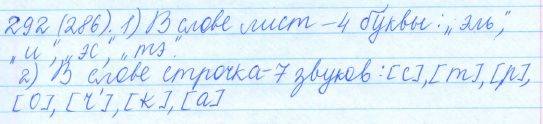 292 (286). 1) В слове лист – 4 буквы: „эль",
„и", „эс", „тэ".
2) В слове строчка – 7 звуков: [с], [т], [р],
[о], [ч'], [к], [а]